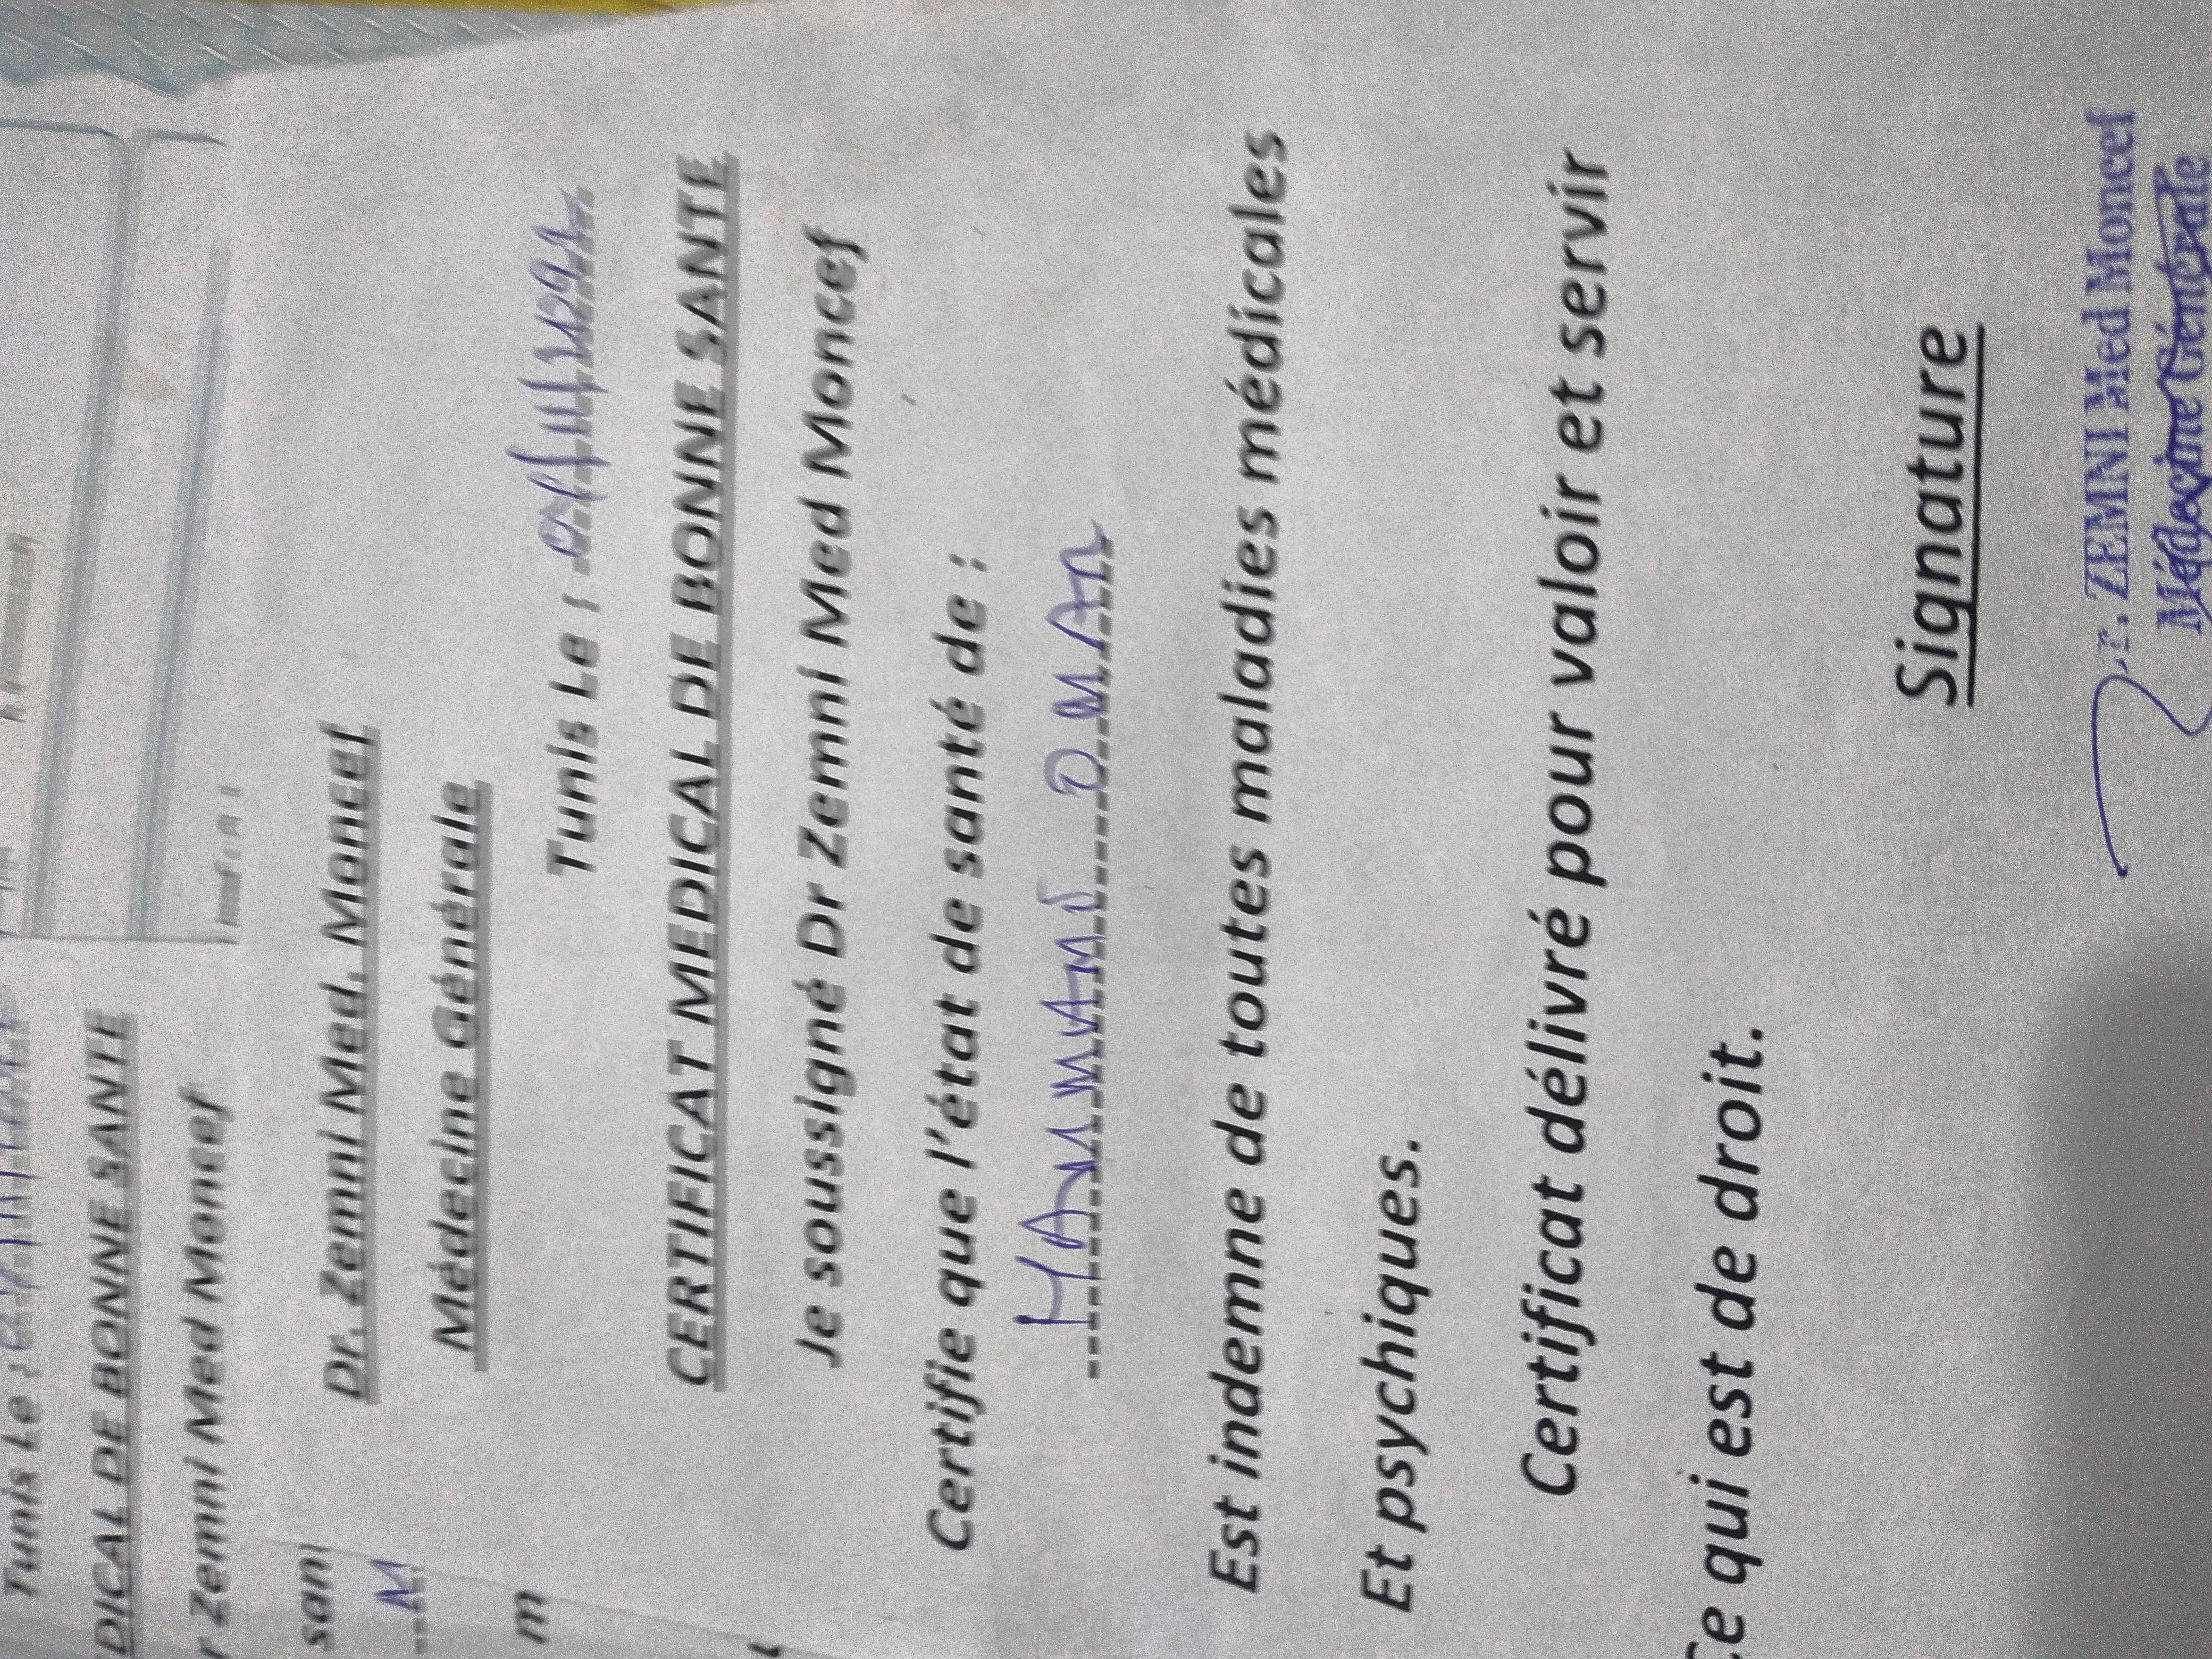 Dr. Zemni Med. Moncef
Médecine Générale
Tunis Le :
CERTIFICAT MEDICAL DE BONNE SANTE
Je soussigné Dr Zemni Med Moncef
Certifie que l'état de santé de :
OMAR
Est indemne de toutes maladies médicales
Et psychiques.
Certificat délivré pour valoir et servir
Ce qui est de droit.
Signature
Dr. ZEMNI Med Moncef
Médecine Générale
Tunis Le :
DICAL DE BONNE SANTE
r Zemni Med Moncef
san
m